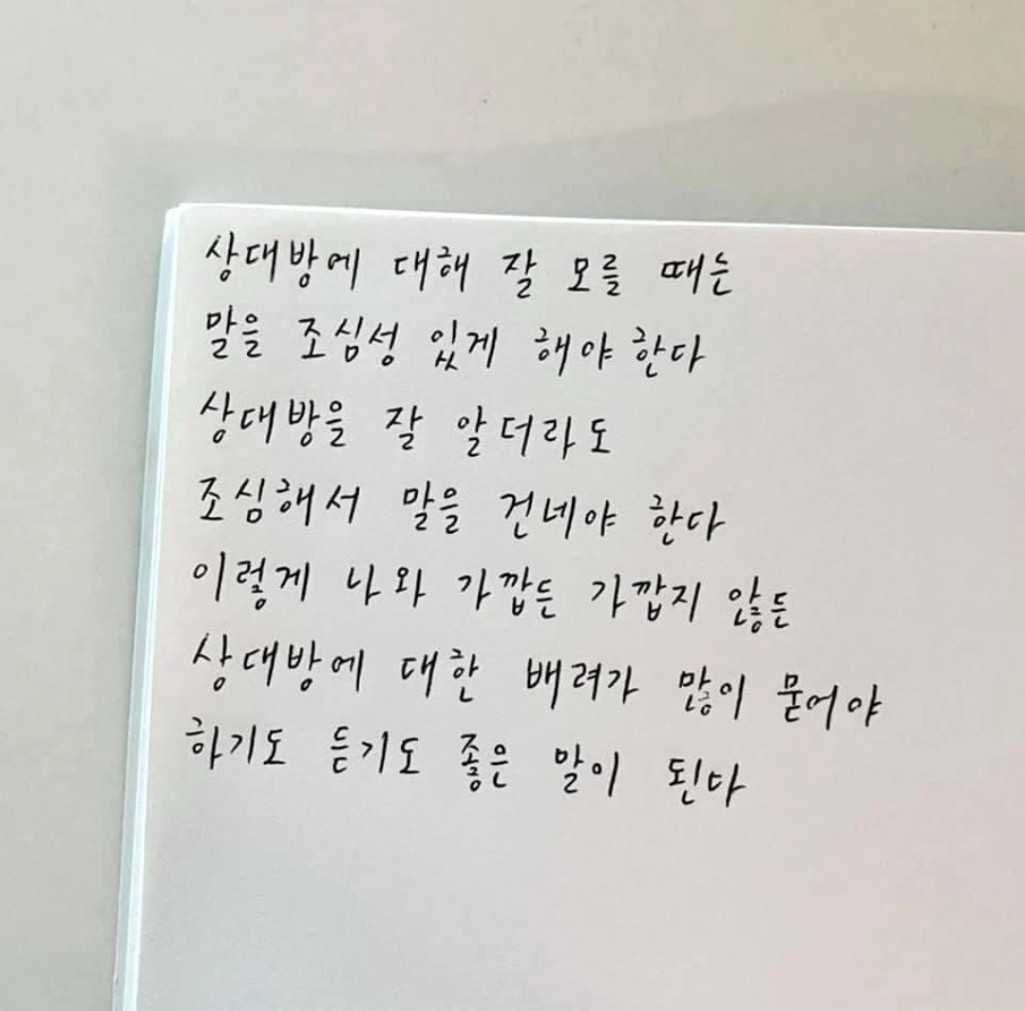 상대방에 대해 잘 모를 때는
말을 조심성 있게 해야 한다
상대방을 잘 알더라도
조심해서 말을 건네야 한다
이렇게 나와 가깝든 가깝지 않든
상대방에 대한 배려가 많이 묻어야
하기도 듣기도 좋은 말이 된다